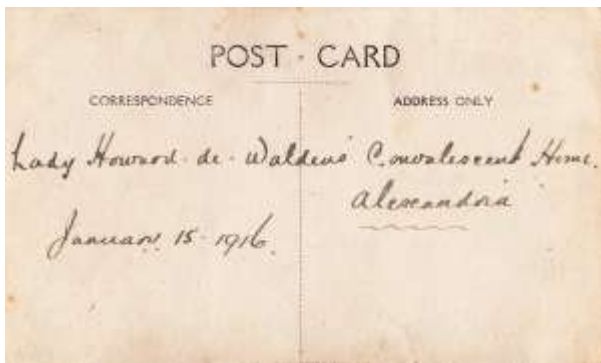 POST · CARD
CORRESPONDENCE
ADDRESS ONLY
Lady Howard-de-Walden's Convalescent Home.
Alexandria
January 15-1916.